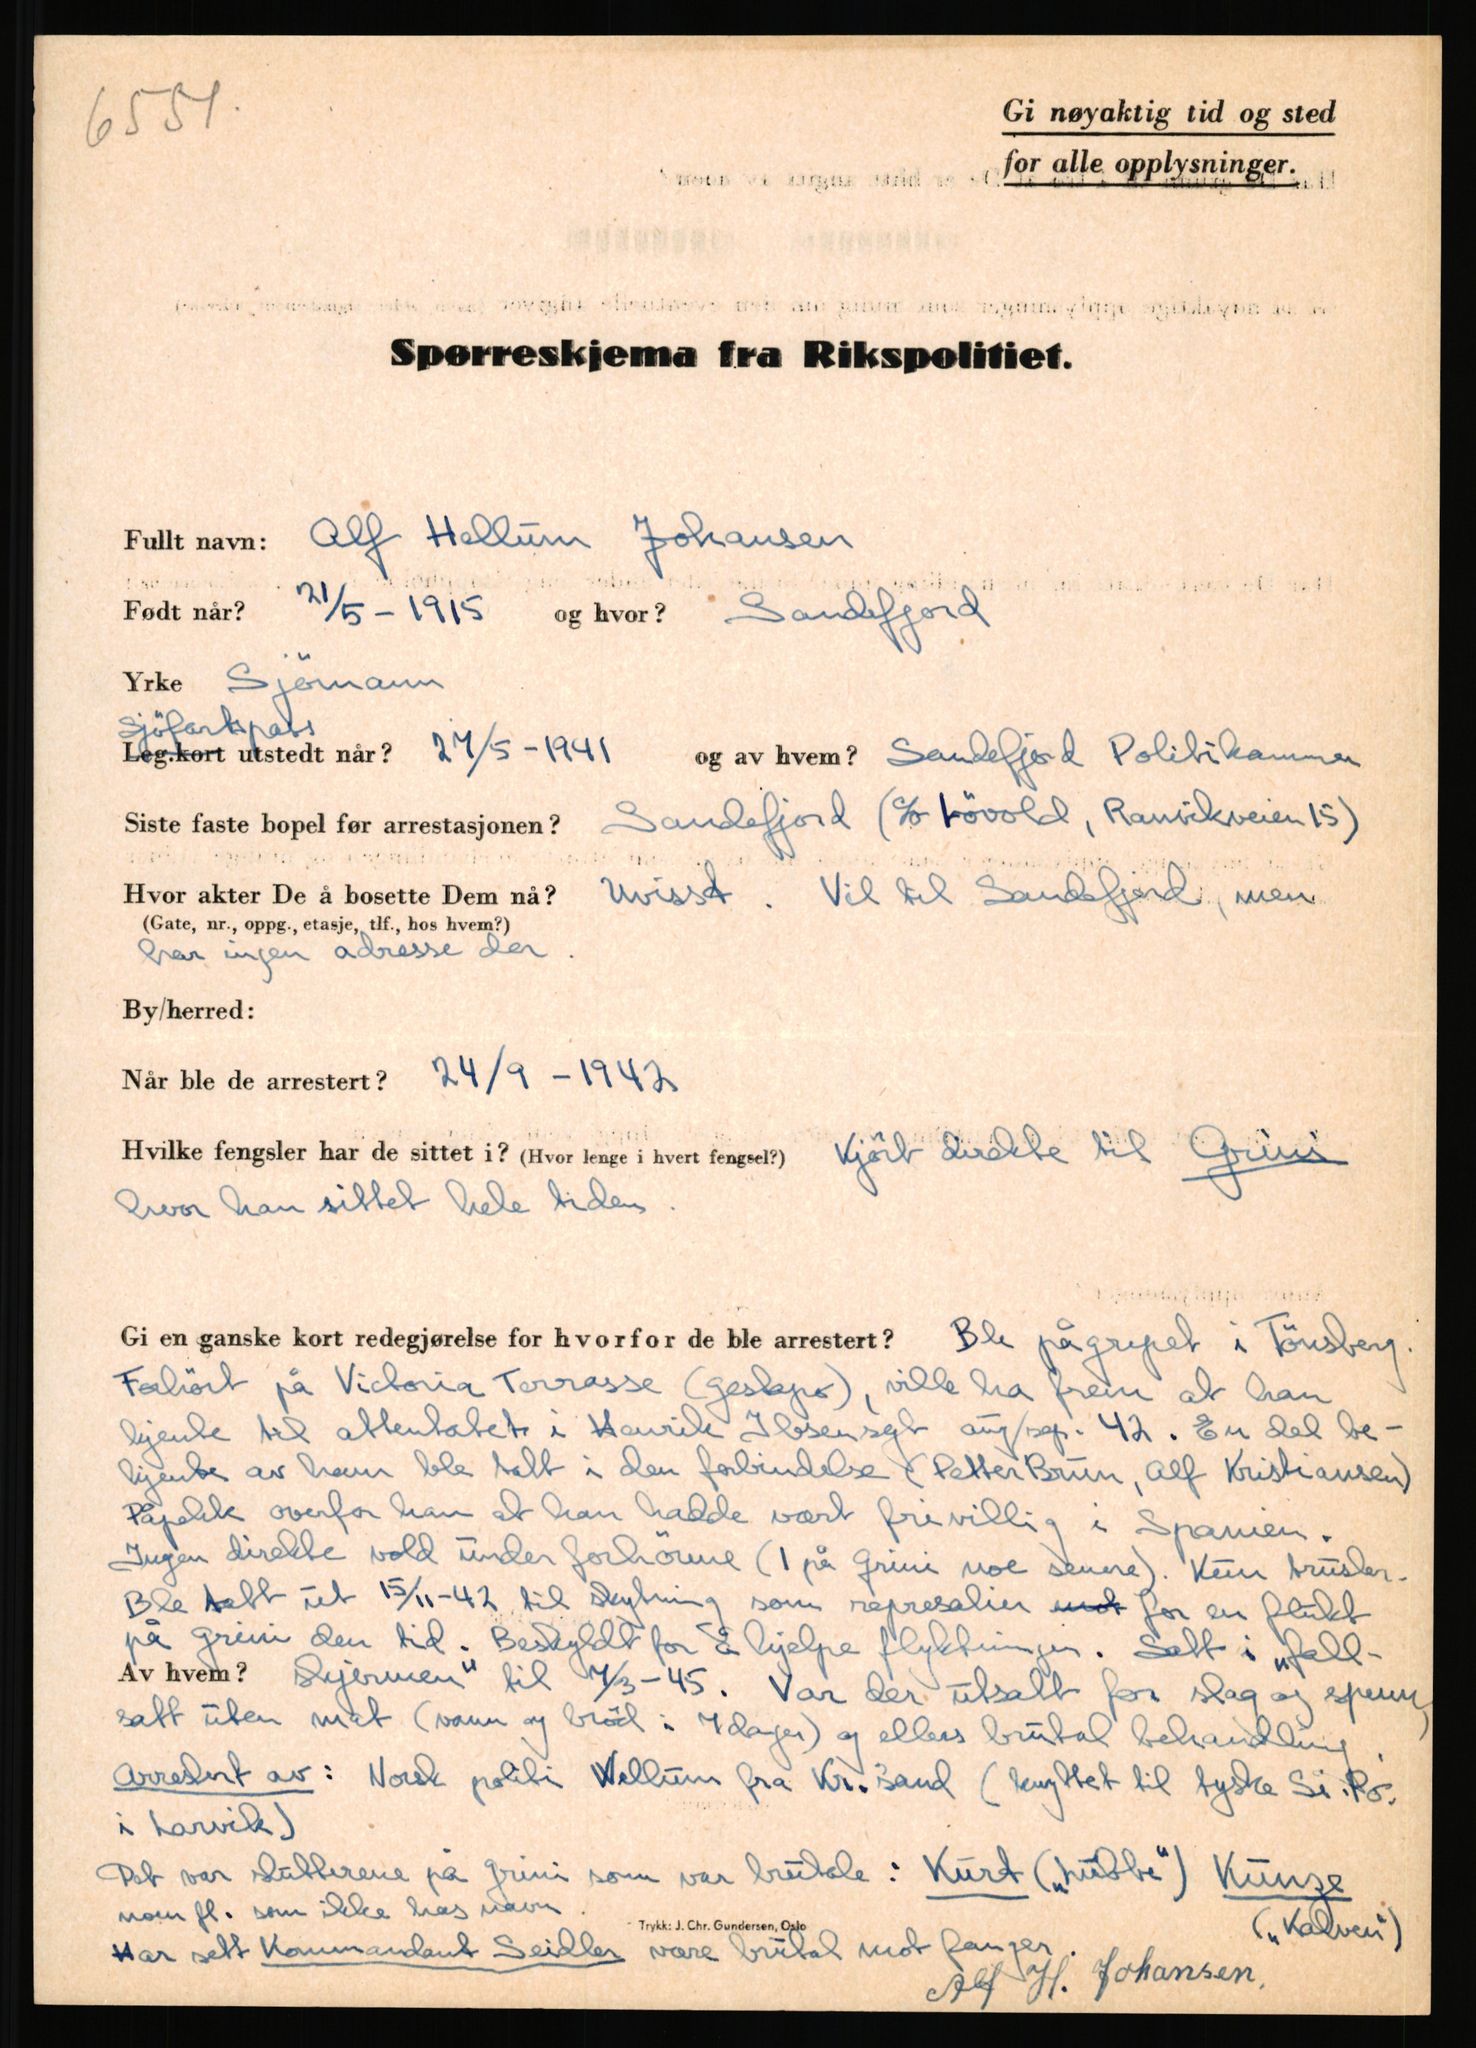 6551.
Gi nøyaktig tid og sted
for alle opplysninger.
Spørreskjema fra Rikspolitiet.
Fullt navn: Alf Hellum Johansen
Født når? 21/5 - 1915 og hvor? Sandefjord
Yrke Sjömann
Sjöfartspass
Leg.kort utstedt når? 27/5 - 1941 og av hvem? Sandefjord Politikammer
Siste faste bopel før arrestasjonen? Sandefjord (c/o Lövold, Ranvikveien 15)
Hvor akter De å bosette Dem nå? Uvisst. Vil til Sandefjord, men
(Gate, nr., oppg., etasje, tlf., hos hvem?)
har ingen adresse der.
By/herred:
Når ble de arrestert? 24/9 - 1942
Hvilke fengsler har de sittet i? (Hvor lenge i hvert fengsel?) Kjört direkte til Grini
hvor han sittet hele tiden.
Gi en ganske kort redegjørelse for hvorfor de ble arrestert? Ble pågrepet i Tönsberg.
Forhört på Victoria Terrasse (gestapo), ville ha frem at han
kjente til attentatet i Henrik Ibsensgt aug/sep. 42. En del be-
kjente av ham ble tatt i den forbindelse (Petter Brun, Alf Kristiansen)
Påpekt overfor han at han hadde vært frivillig i Spanien.
Ingen direkte vold under forhörene (1 på Grini noe senere). Kun trusler.
Ble tatt ut 15/11-42 til skytning som represalier mot for en flukt
på Grini den tid. Beskyldt for å hjelpe flyktninger. Satt i „fall-
Av hvem? skjermen“ til 7/3-45. Var der utsatt for slag og spenn,
satt uten mat (vann og bröd i 7 dager) og ellers brutal behandling.
Arrestert av: Norsk politi Wellum fra Kr.sand (knyttet til tyske Si.Po.
i Larvik)
Det var slutterene på Grini som var brutale: Kurt („Lubbe“) Kunze
(„Kalven“)
noen fl. som ikke has navn.
Trykk: J. Chr. Gundersen, Oslo
Har sett Kommandant Seidler være brutal mot fanger.
Alf H. Johansen.